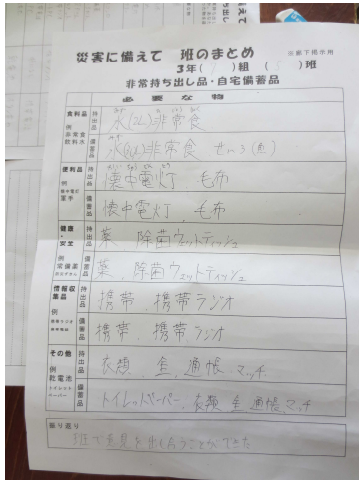 災害に備えて 班のまとめ ※廊下掲示用
3年( )組( )班
非常持ち出し品・自宅備蓄品
必要な物
食料品 例 非常食 飲料水
持出品 水(2L)非常食
備蓄品 水 非常食
便利品 例 懐中電灯 軍手
持出品 懐中電灯 毛布
備蓄品 懐中電灯、毛布
健康・安全 例 常備薬
持出品 薬 除菌ウェットティッシュ
備蓄品 薬、除菌ウェットティッシュ
情報収集品 例 携帯ラジオ
持出品 携帯、携帯ラジオ
備蓄品 携帯、携帯ラジオ
その他 例 乾電池 トイレットペーパー
持出品 衣類、金、通帳、マッチ
備蓄品 トイレットペーパー、衣類、金、通帳、マッチ
振り返り
班で意見を出し合うことができた